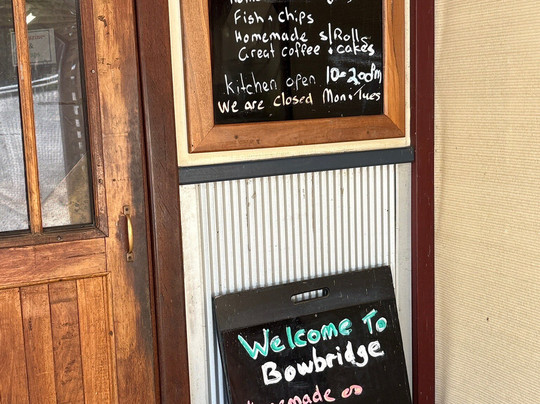 Fish + Chips
Homemade S/Rolls
Great coffee + cakes
kitchen open 10-200pm
We are closed Mon + Tues
Welcome To
Bowbridge